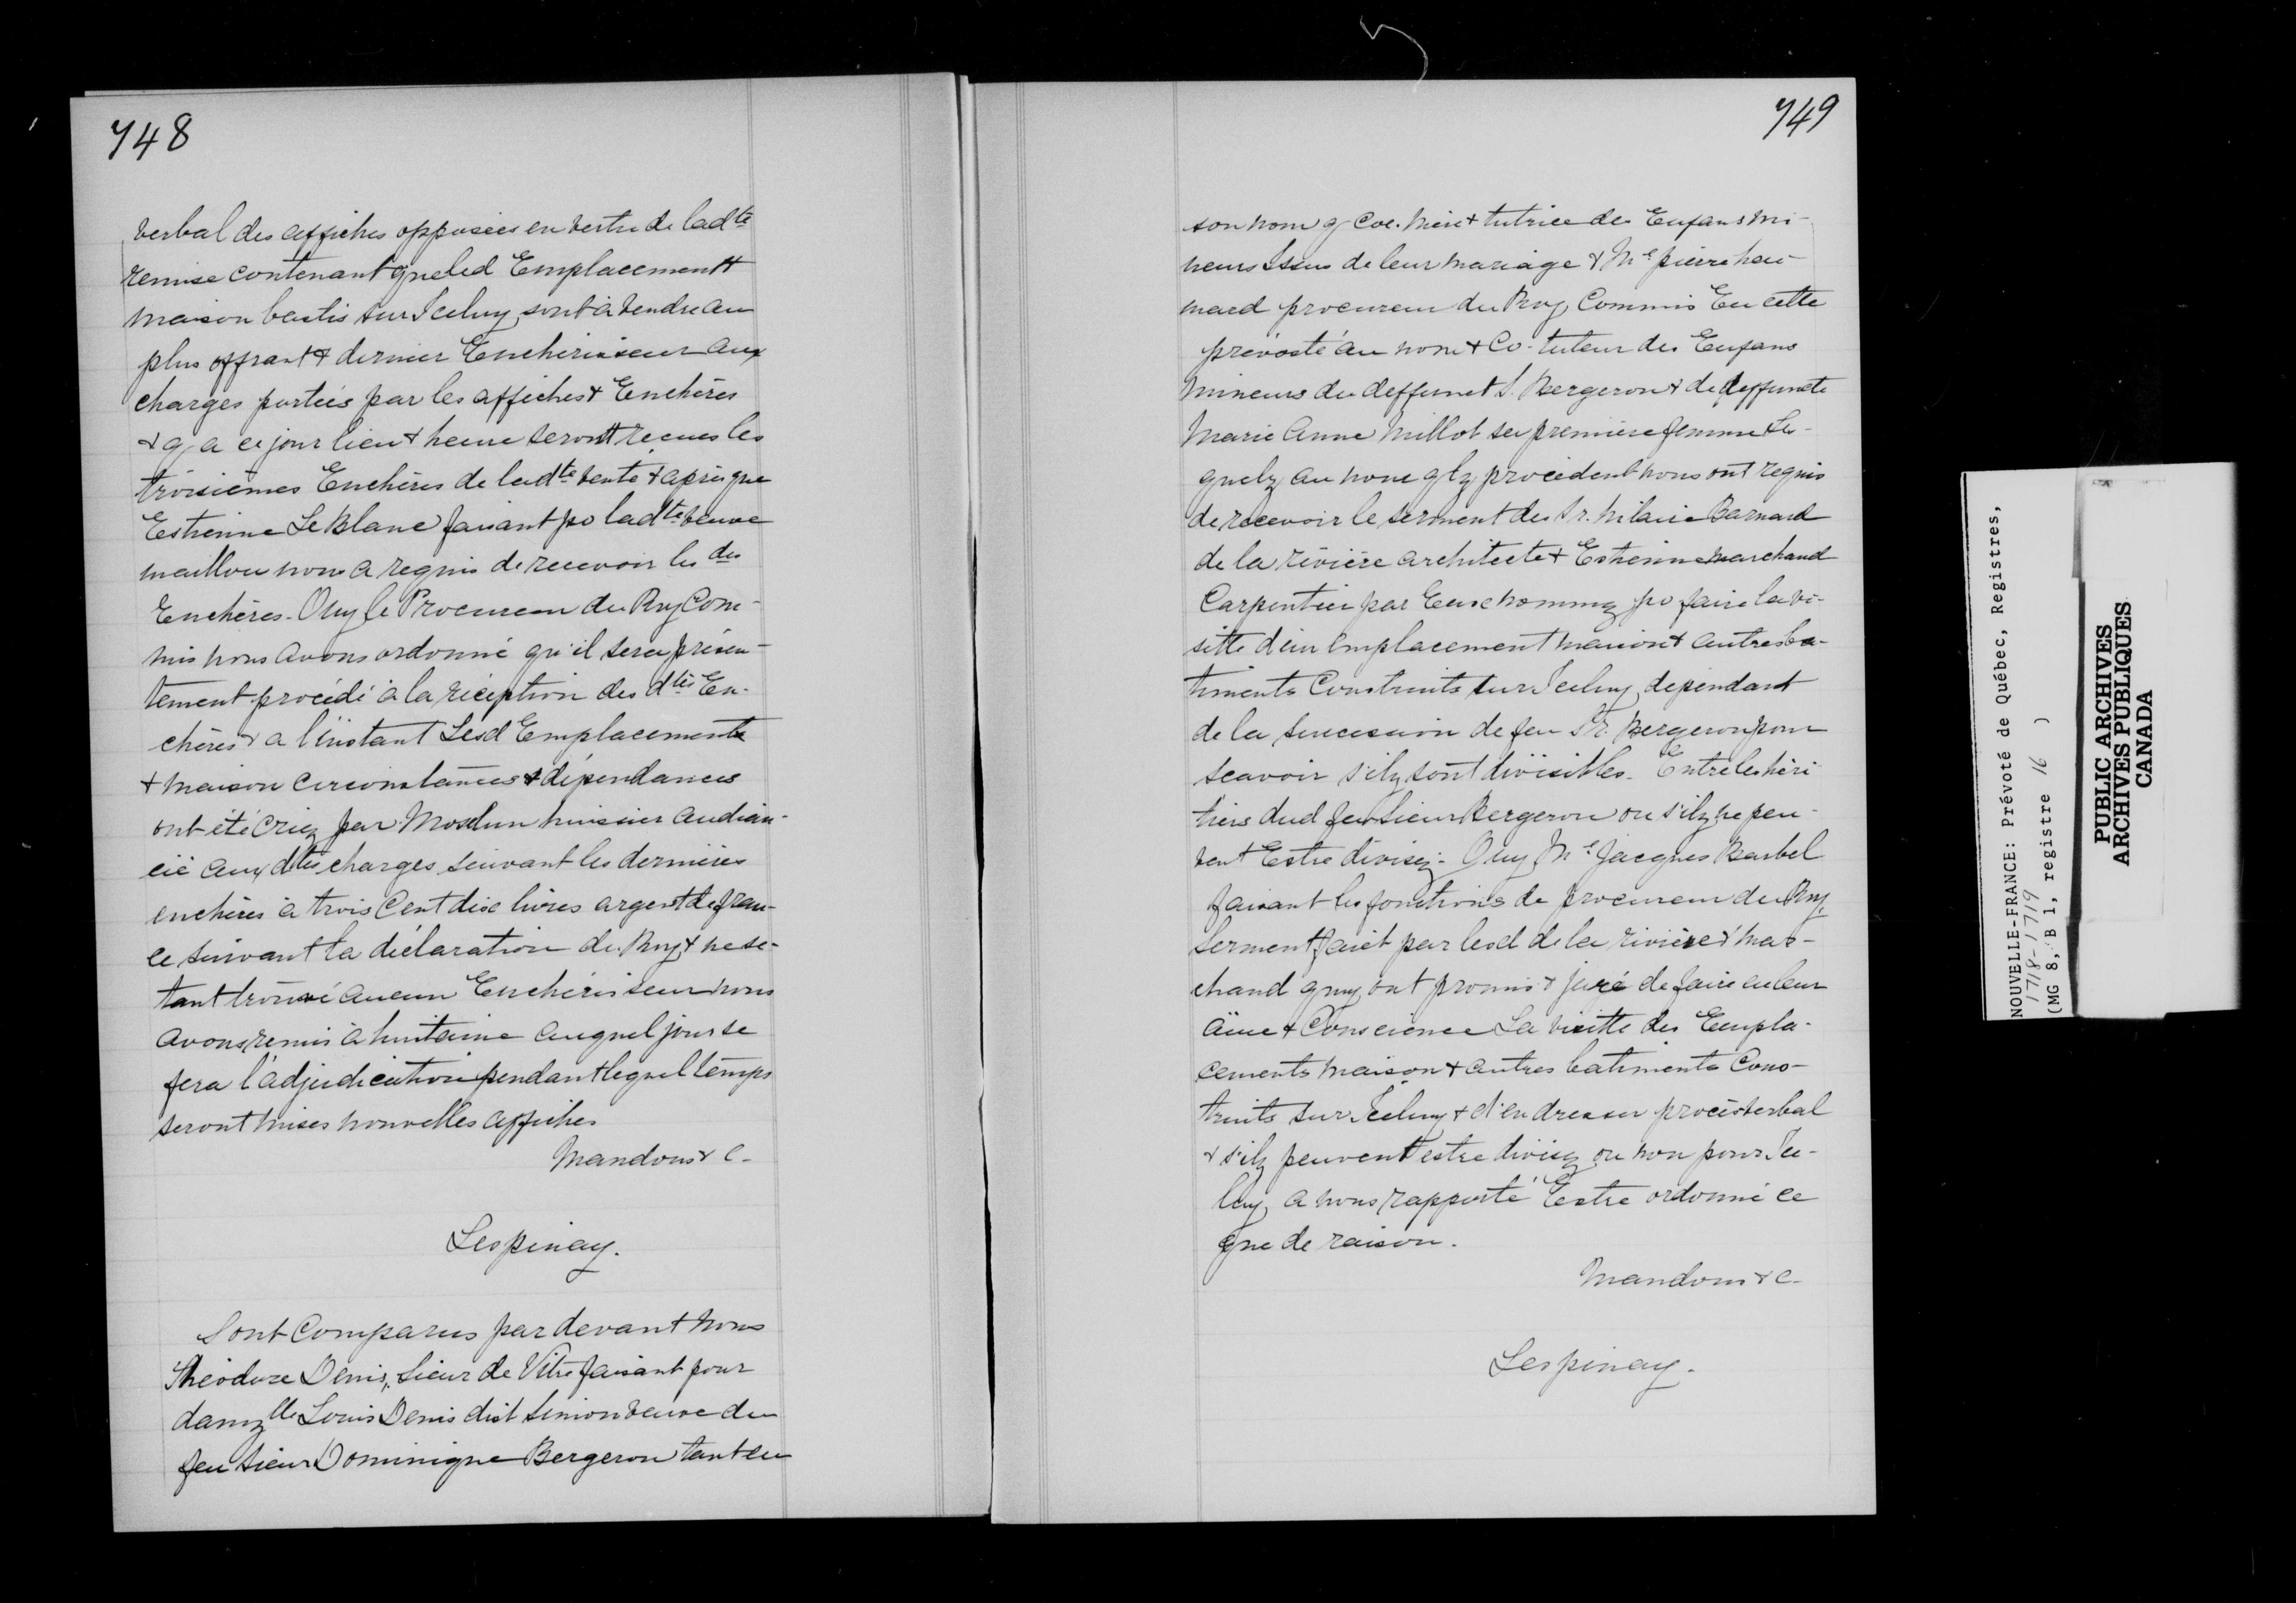 748
verbal des affiches apposées en vertu de ladte
remise contenant que led Emplacement &
maison bastis sur Iceluy sont à vendre au
plus offrant & dernier Encherisseur aux
charges portées par les affiches & Enchères
& q a ce jour lieu & heure seront recues les
troisièmes Enchères de ladte vente & après que
Estienne Le Blanc faisant po ladte veuve
maillou nous a requis de recevoir les des
Enchères. Ouy le Procureur du Roy Com-
mis nous avons ordonné qu'il sera présen-
tement procédé à la réception des dtes En-
chères & a l'instant Lesd Emplacements
& maison circonstances & dépendances
ont été criez par Moselun huissier audian-
cié aux dtes charges suivant les dernières
enchères à trois Cent dix livres argent de fran-
ce suivant la déclaration du Roy & ne se-
tant trouvé aucun Enchérisseur nous
avons remis à huitaine auquel jour se
fera l'adjudication pendant lequel temps
seront mises nouvelles affiches
Mandons & C-
Lespinay.
Sont Comparus par devant nous
Théodore Denis, Sieur de Vitré faisant pour
damzlle Louis Denis dist Simon veuve du
feu Sieur Dominique Bergeron tant en
749
son nom q Coe. Mère & tutrice des Enfans mi-
neurs Issus de leur mariage & Me pierre hai-
mard procureur du Roy Commis En cette
prévosté au nom & Co-tuteur des Enfans
mineurs du deffunct S. Bergeron & de deffuncte
Marie Anne Millot sa première femme Les-
quelz au nom qlz procèdent nous ont requis
de recevoir le serment des Sr. hilaire Barnard
de la rivière architecte & Estienne marchand
Carpentier par Eux nommez po faire la vi-
sitte d'un emplacement maison & autres ba-
timents Construits sur Iceluy dépendant
de la succession de feu Sr. Bergeron pour
scavoir s'ilz sont divisibles. Entre les héri-
tiers dud feu Sieur Bergeron ou s'ilz ne peu-
vent Estre divisez. Ouy Me Jacques Barbel
faisant les fonctions de procureur du Roy,
Serment fait par lesd de la rivière & mar-
chand quy ont promis & juré de faire en leur
âme & Conscience La visitte des Empla-
cements maison & autres batiments Cons-
truits sur Iceluy & d'en dresser procès verbal
& s'ilz peuvent estre divisez ou non pour Ice-
luy a nous rapporté Estre ordonné ce
que de raison.
Mandons & C-
Lespinay.
NOUVELLE-FRANCE: Prévoté de Québec, Registres,
1718-1719
(MG 8, B 1, registre 16 )
PUBLIC ARCHIVES
ARCHIVES PUBLIQUES
CANADA